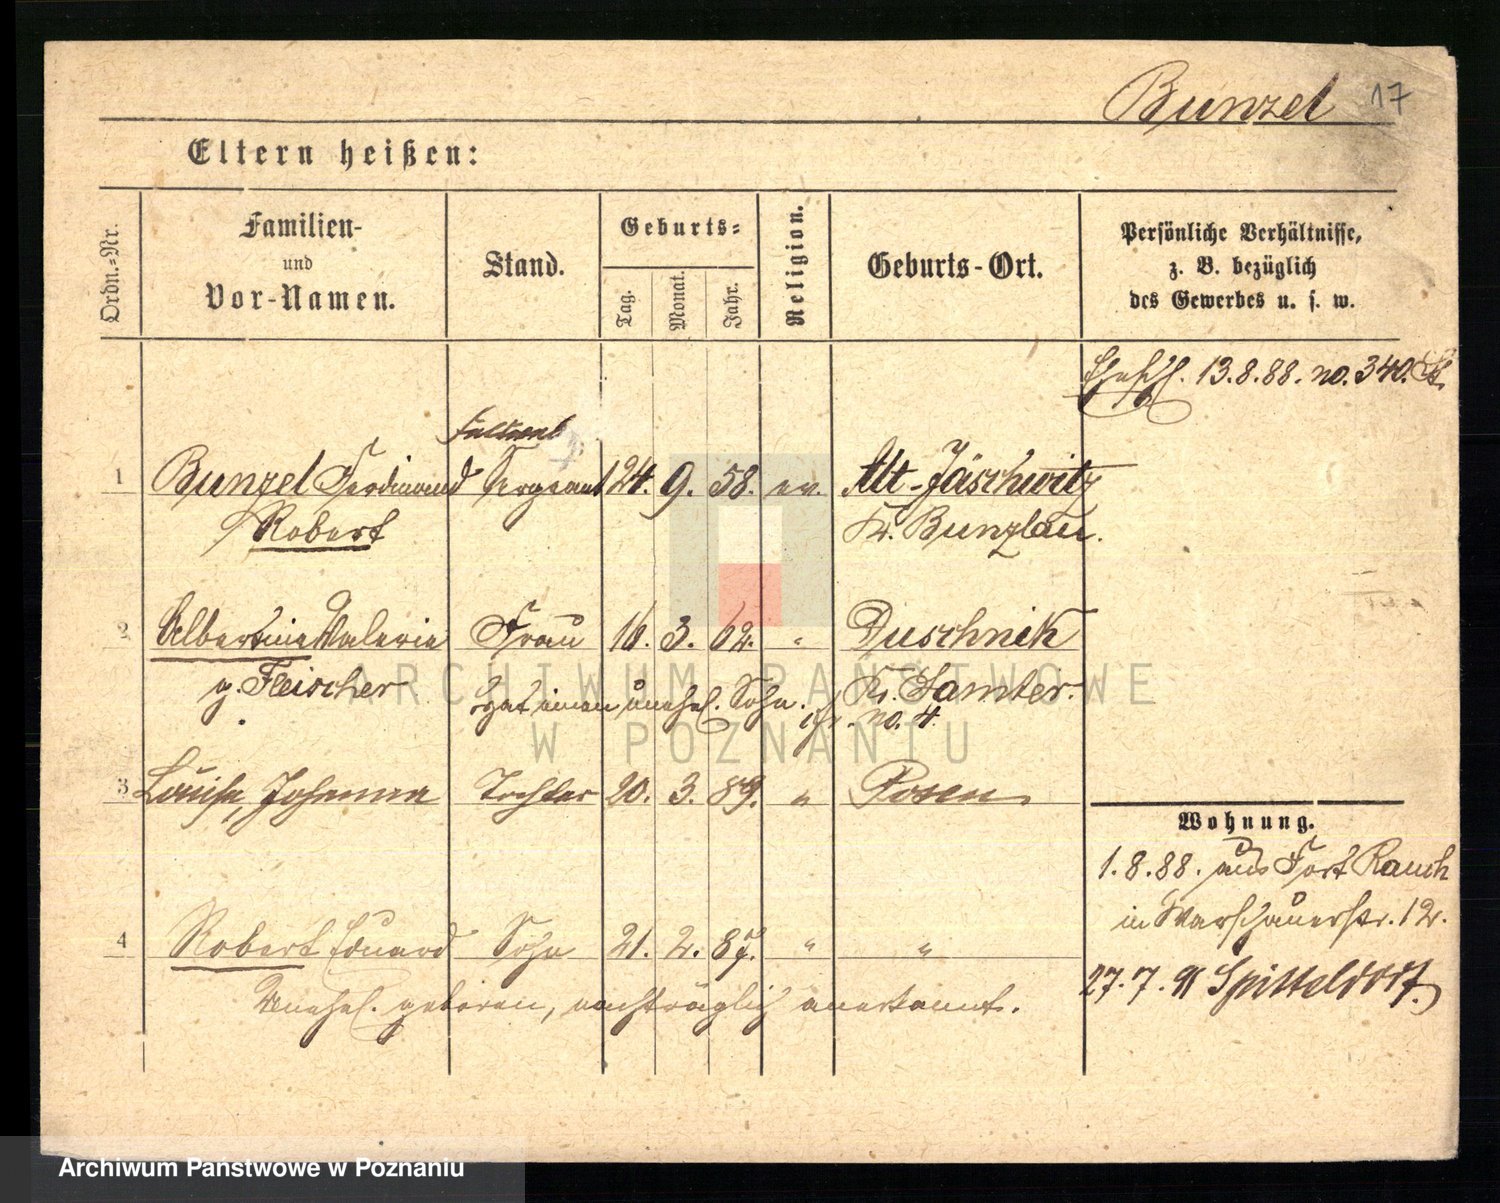 Bunzel 17
Eltern heißen:
Ordn.-Nr.
Familien-
und
Vor-Namen.
Stand.
Geburts-
Tag.
Monat.
Jahr.
Religion.
Geburts-Ort.
Persönliche Verhältnisse,
z. B. bezüglich
des Gewerbes u. s. w.
13.8.88. no. 340.
1 Bunzel Ferdinand Sergeant 24. 9. 58. ev. Alt-Jäschwitz
Robert Kr. Bunzlau.
2 Albertine Valerie Frau 16. 3. 62. " Duschnik
g. Fleischer Kr. Samter.
Hat einen unehel. Sohn. no. 4.
3 Louise, Johanna Tochter 20. 3. 89. " Posen
Wohnung.
1.8.88. aus Fort Rauch
in Warschauerstr. 12.
4 Robert Eduard Sohn 21. 2. 87. " "
27. 7. 91 Spitteldorf.
Unehel. geboren, nachträglich anerkannt.
ARCHIWUM PAŃSTWOWE
W POZNANIU
Archiwum Państwowe w Poznaniu